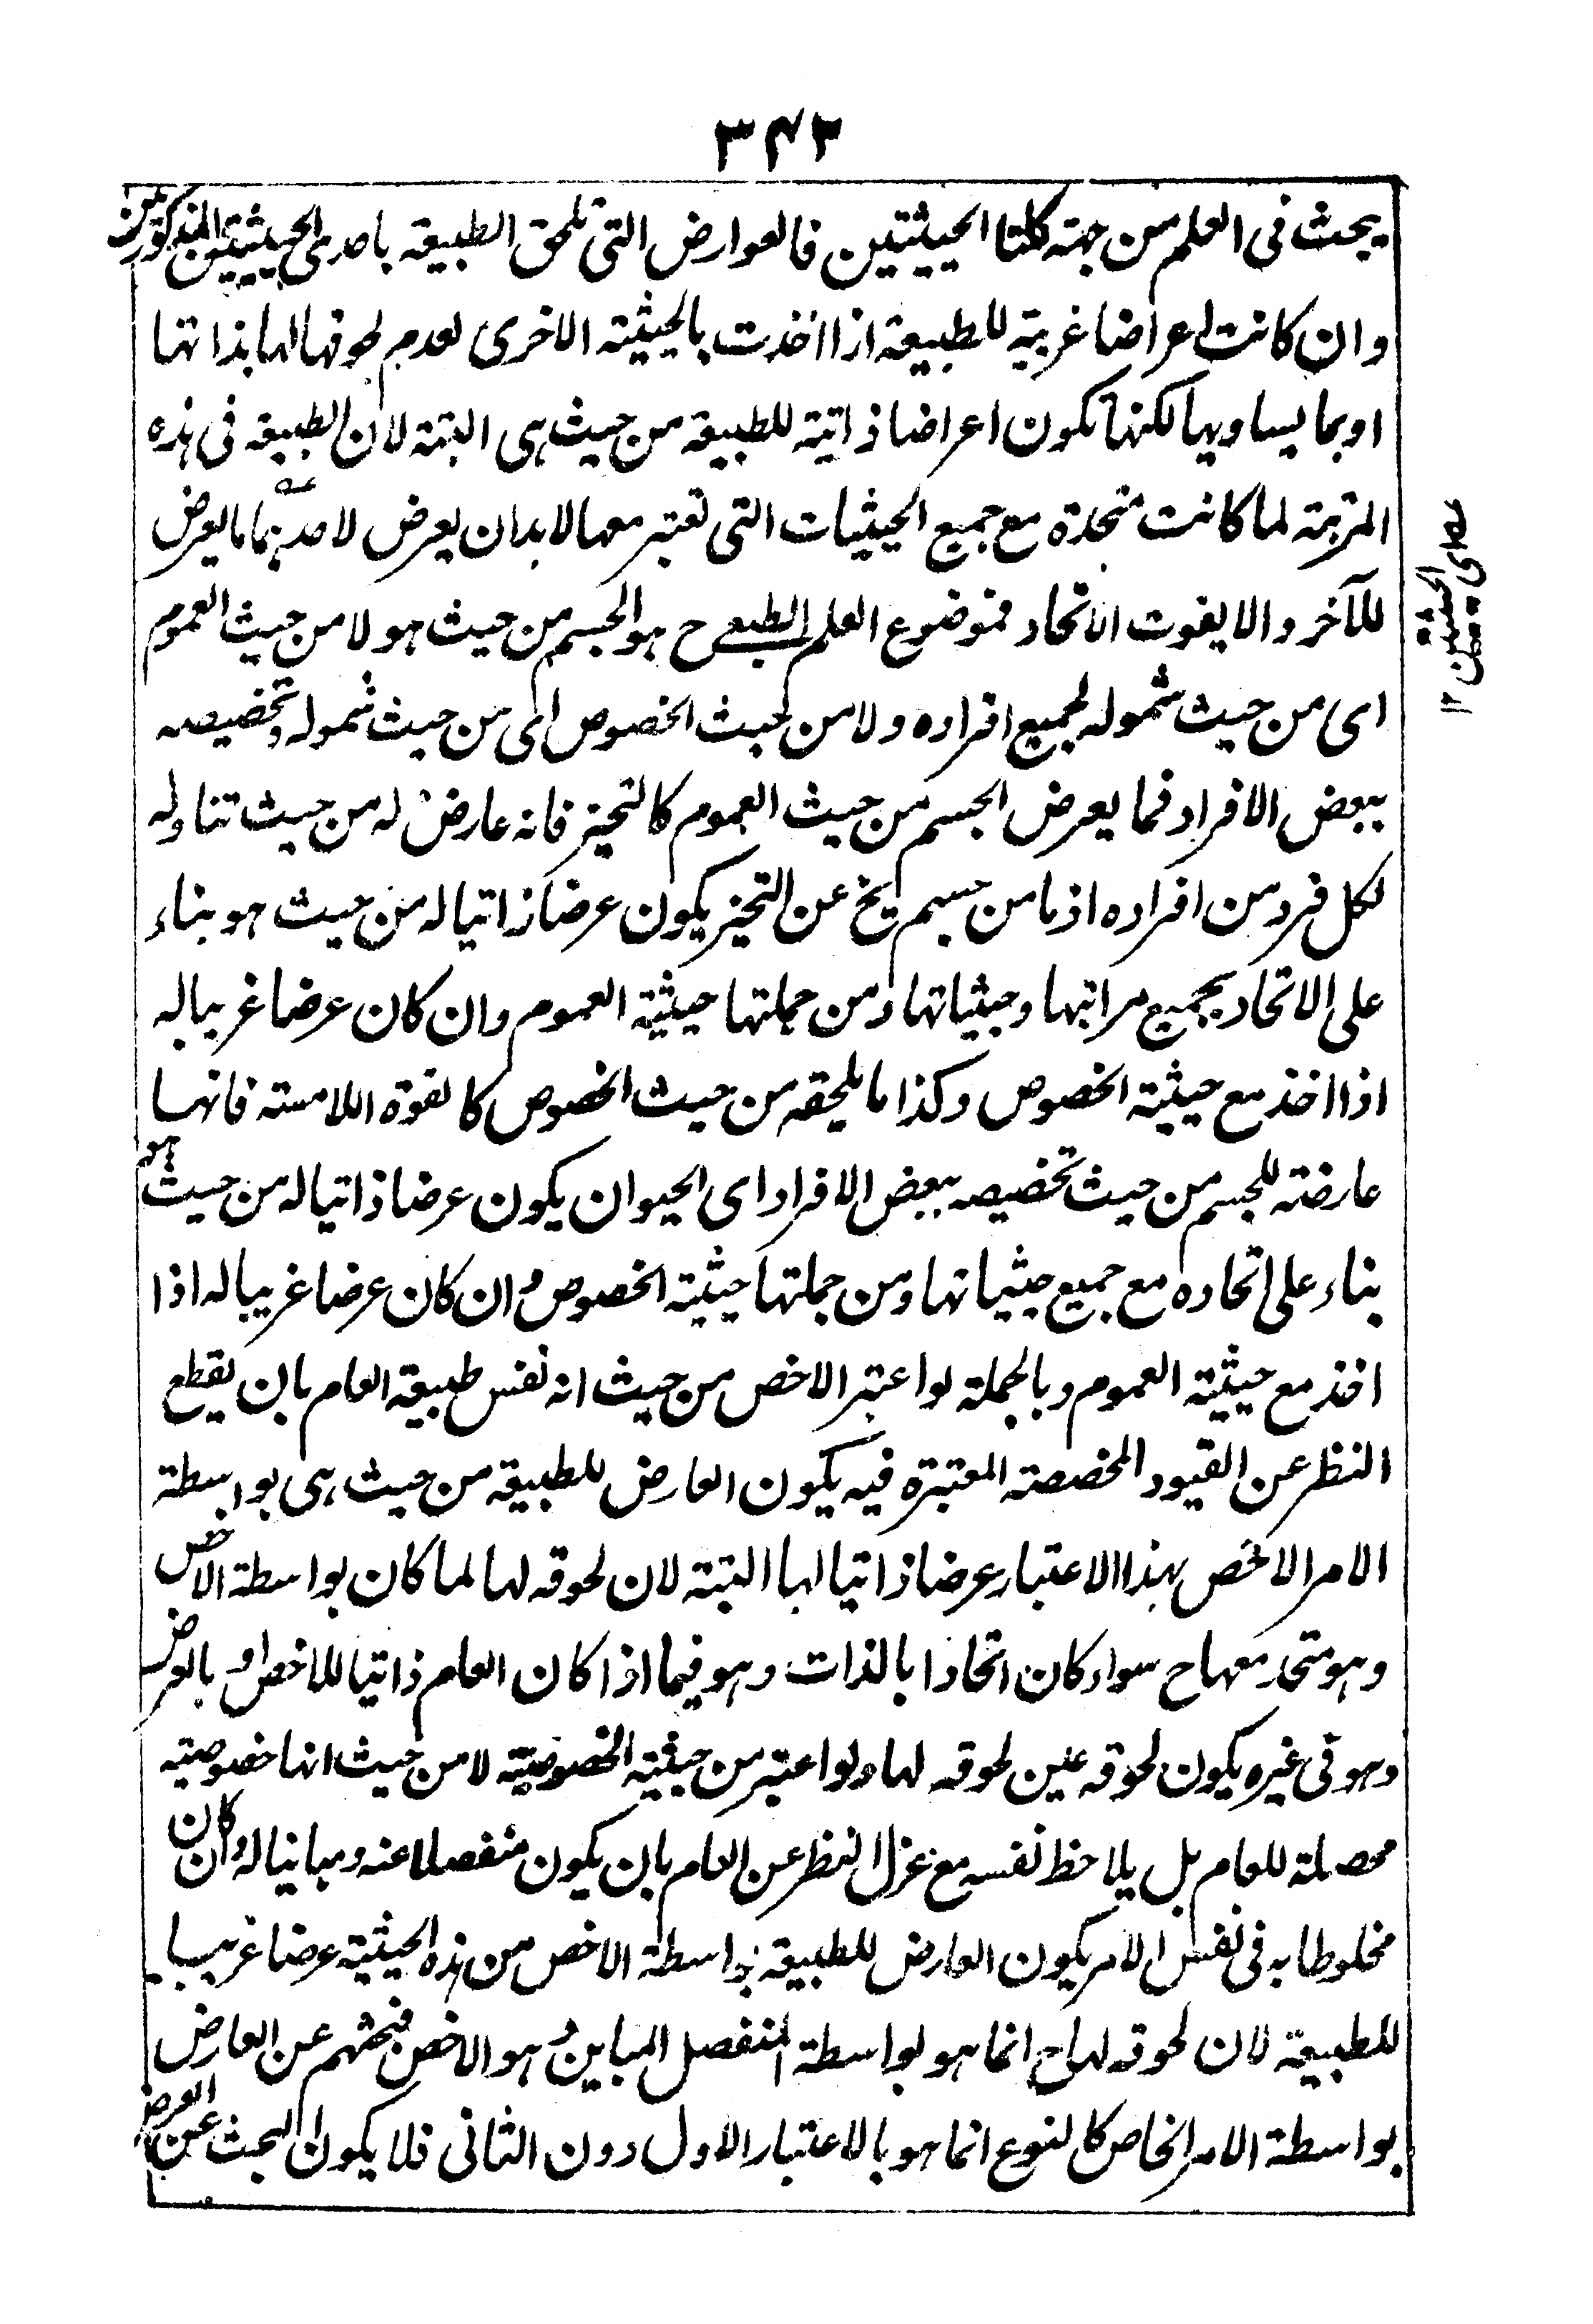 ٣٤٣
يبحث فى العلم من جهة كلتا الحيثيتين فالعوارض التى تلحق الطبيعة باحدى الحيثيتين المذكورتين
وان كانت اعراضا غريبة للطبيعة اذا اخذت بالحيثية الاخرى لعدم لحوقها لها بذاتها
او بما يساويها لكنها تكون اعراضا ذاتية للطبيعة من حيث هى البتة لان الطبيعة فى هذه
المرتبة لما كانت متحدة مع جميع الحيثيات التى تعتبر معها لابد ان يعرض لاحدهما ما يعرض
للآخر والا يفوت الاتحاد فموضوع العلم الطبعى ح هو الجسم من حيث هو لا من حيث العموم
اى من حيث شموله لجميع افراده ولا من حيث الخصوص اى من حيث شموله وتخصيصه
ببعض الافراد فما يعرض الجسم من حيث العموم كالتحيز فانه عارض له من حيث تناوله
لكل فرد من افراده اذ ما من جسم يخ عن التحيز يكون عرضا ذاتيا له من حيث هو بناء
على الاتحاد بجميع مراتبها وحيثياتها ومن جملتها حيثية العموم وان كان عرضا غريبا له
اذا اخذ مع حيثية الخصوص وكذا ما يلحقه من حيث الخصوص كالقوة اللامسة فانها
عارضة للجسم من حيث تخصيصه ببعض الافراد اى الحيوان يكون عرضا ذاتيا له من حيث هو
بناء على اتحاده مع جميع حيثياتها ومن جملتها حيثية الخصوص وان كان عرضا غريبا له اذا
اخذ مع حيثية العموم وبالجملة لو اعتبر الاخص من حيث انه نفس طبيعة العام بان يقطع
النظر عن القيود المخصصة المعتبرة فيه يكون العارض للطبيعة من حيث هى بواسطة
الامر الاخص بهذا الاعتبار عرضا ذاتيا لها البتة لان لحوقه لها لما كان بواسطة الاخص
وهو متحد معها ح سواء كان اتحادا بالذات وهو فيما اذا كان العام ذاتيا للاخص او بالعرض
وهو فى غيره يكون لحوقه عين لحوقه لها ولو اعتبر من حيثية الخصوصية لا من حيث انها خصوصية
محصلة للعام بل يلاحظ نفسه مع عزل النظر عن العام بان يكون منفصلا عنه ومباينا له وان كان
مخلوطا به فى نفس الامر يكون العارض للطبيعة بواسطة الاخص من هذه الحيثية عرضا غريبا
للطبيعة لان لحوقه لها ح انما هو بواسطة المنفصل المباين وهو الاخص فبحثهم عن العارض
بواسطة الامر الخاص كالنوع انما هو بالاعتبار الاول دون الثانى فلا يكون البحث عن العرض
اى الحيثيتين ١٢